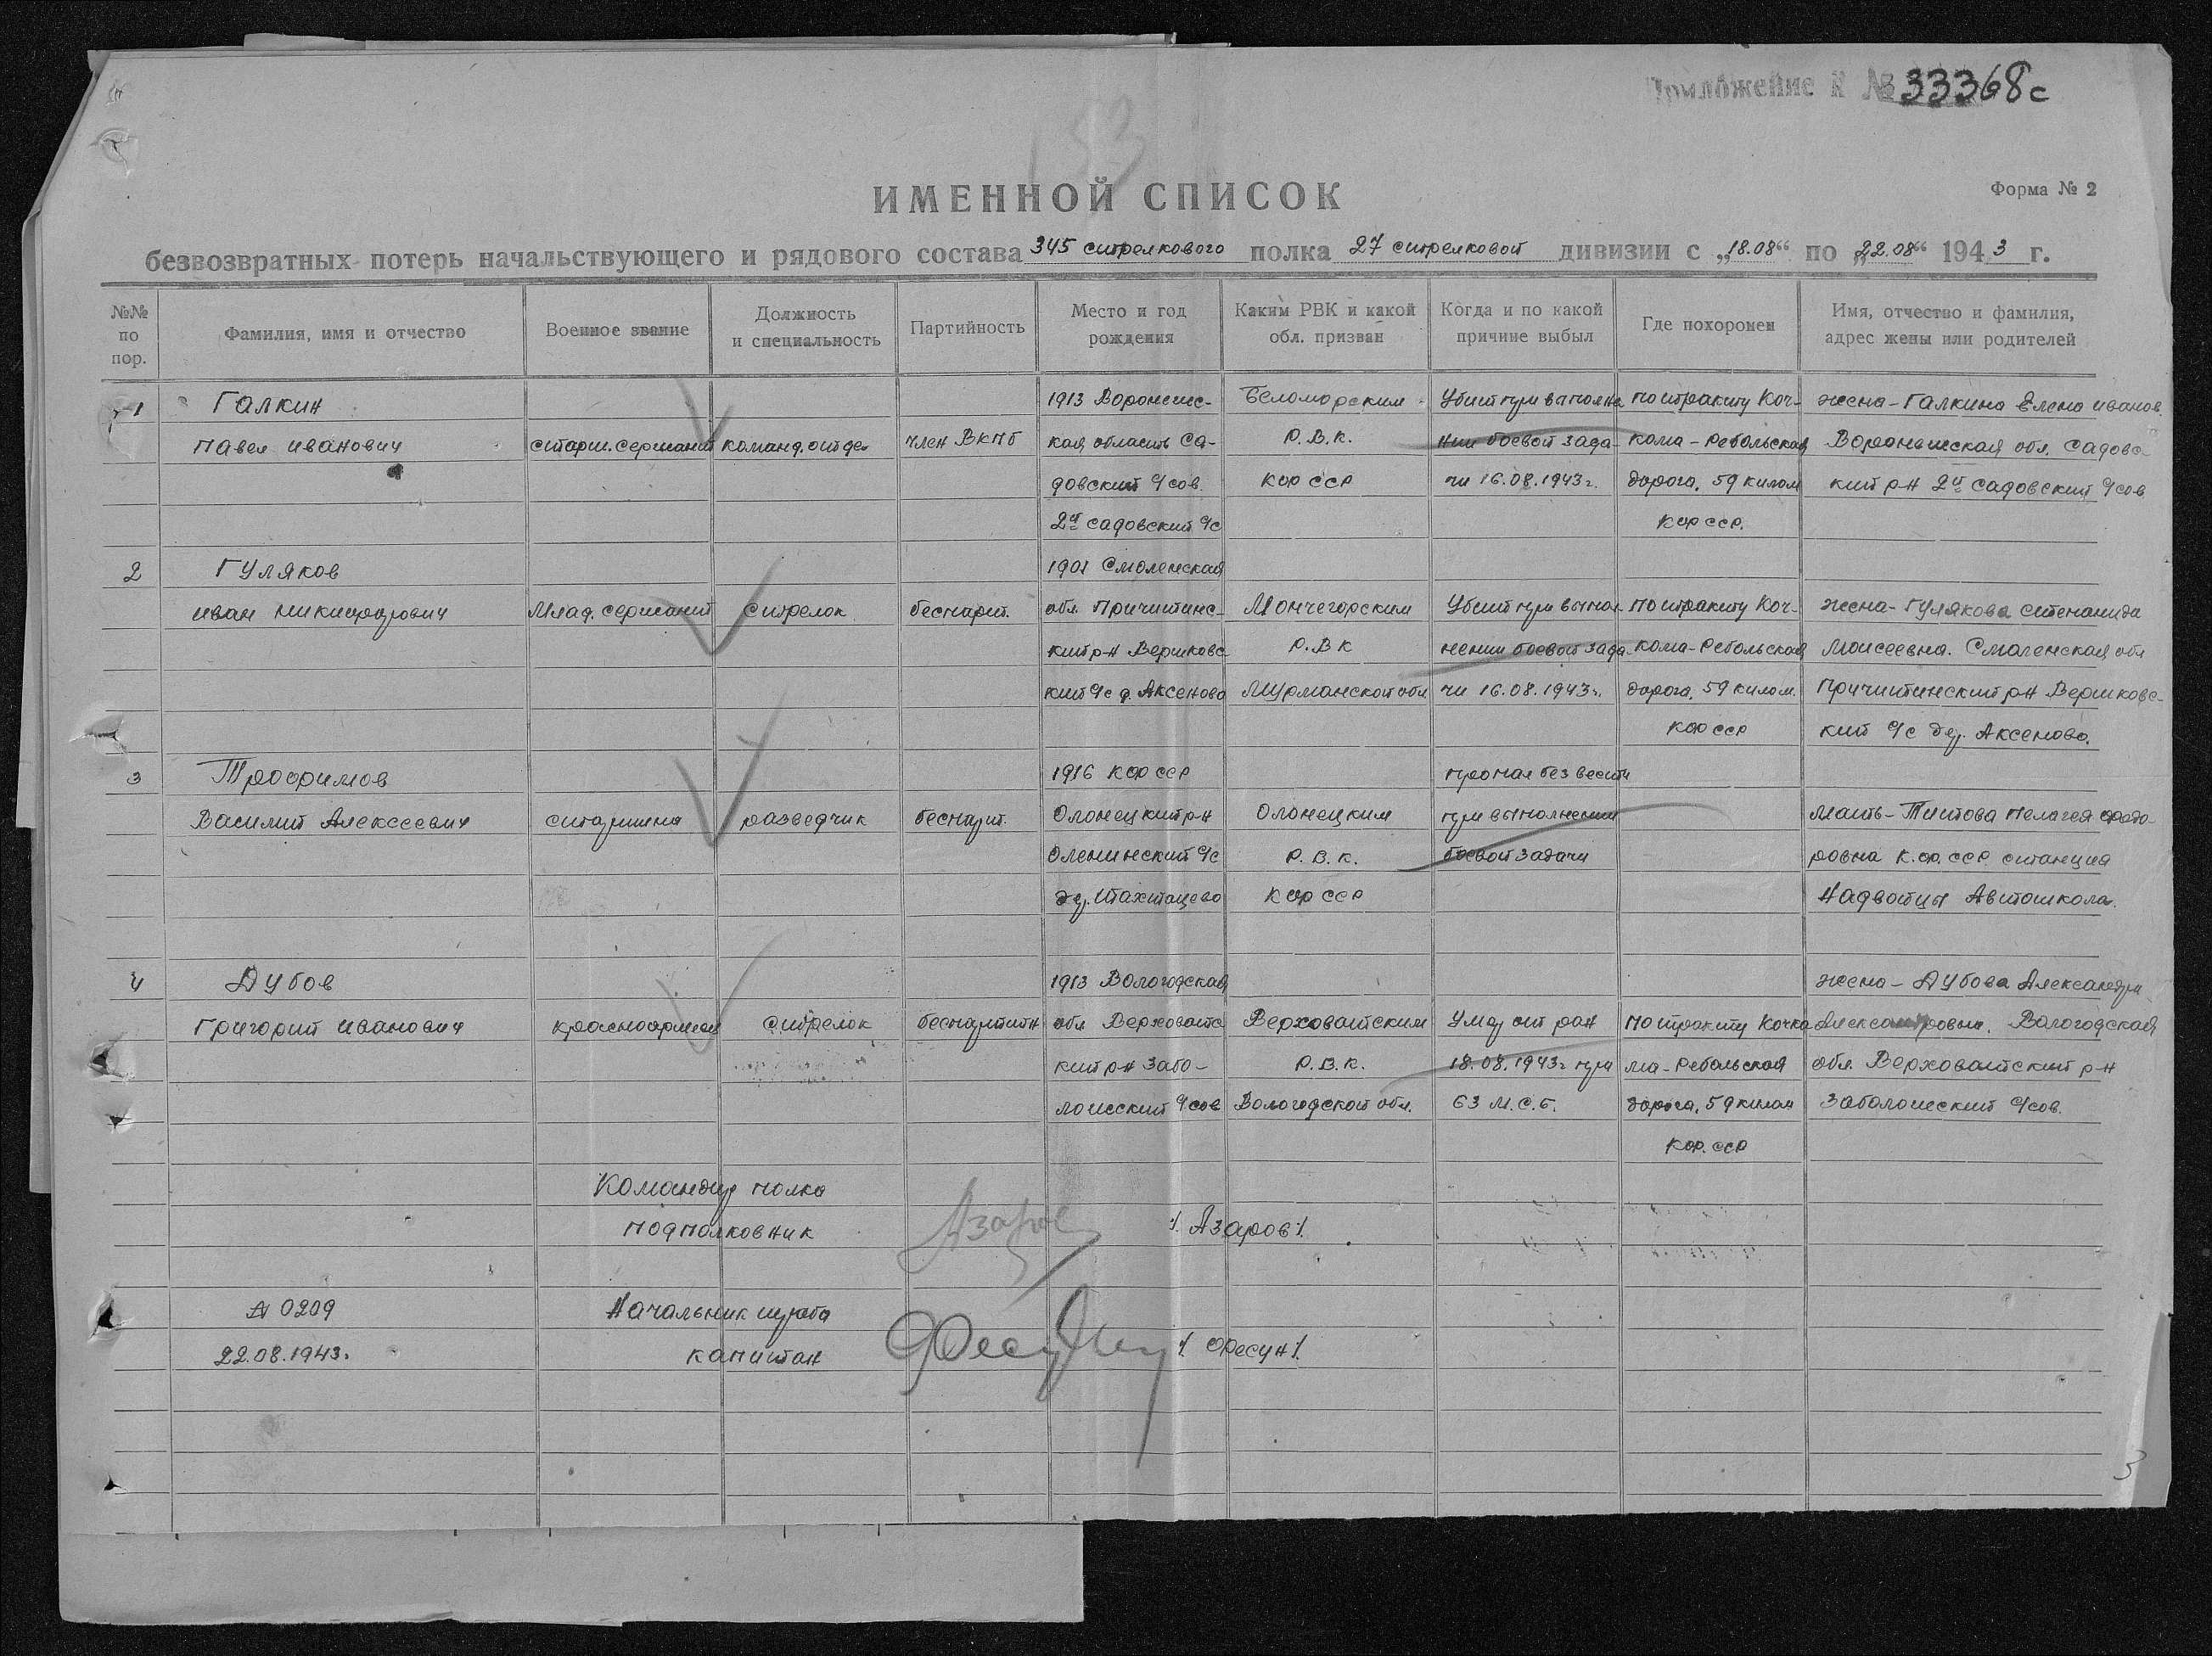 Приложение к № 33368с
ИМЕННОЙ СПИСОК
Форма № 2
безвозвратных потерь начальствующего и рядового состава 345 стрелкового полка 27 стрелковой дивизии с „18.08“ по „22.08“ 1943 г.
№№ по пор.
Фамилия, имя и отчество
Военное звание
Должность и специальность
Партийность
Место и год рождения
Каким РВК и какой обл. призван
Когда и по какой причине выбыл
Где похоронен
Имя, отчество и фамилия, адрес жены или родителей
1 Галкин 1913 Воронежс- Беломорским Убит при выполне по тракту Коч- жена - Галкина Елена Иванов.
Павел Иванович старш. сержант команд. отдел член ВКПб кая область Са- Р.В.К. нии боевой зада- кома - Ребольская Воронежская обл. Садовс-
довский с/сов. КФССР чи 16.08.1943г. дорога, 59 килом кий р-н 2й Садовский с/сов
2й Садовский с/с КФССР.
2 Гуляков 1901 Смоленская
Иван Никифорович Млад. сержант стрелок беспарт. обл. Пречистинс- Мончегорским Убит при выпол- по тракту Коч- жена - Гулякова Степанида
кий р-н Вержковс- Р.В.К нении боевой зада- кома - Ребольская Моисеевна. Смоленская обл
кий с/с д. Аксеново Мурманской обл чи 16.08.1943г. дорога, 59 килом. Пречистинский р-н Вержковс-
КФССР кий с/с дер. Аксеново.
3 Трофимов 1916 КФССР пропал без вести
Василий Алексеевич старшина разведчик беспарт. Олонецкий р-н Олонецким при выполнении мать - Титова Пелагея Федо-
с/с Р.В.К. боевой задачи ровна К.Ф.ССР станция
дер. КФССР Надвойцы Автошкола.
4 Дубов 1913 Вологодская жена - Дубова Александра
Григорий Иванович красноармеец стрелок беспартийн обл. Верховажс- Верховажским Умер от ран по тракту Кочко Александровна. Вологодская
кий р-н Забо- Р.В.К. 18.08.1943г при ма - Ребольская обл. Верховажский р-н
ложский с/сов Вологодской обл. 63 М.С.Б. дорога, 59 килом Заболожский с/сов.
КФ.ССР
Командир полка
подполковник Азаров /Азаров/.
№ 0209 Начальник штаба
22.08.1943г. капитан Фесун /Фесун/.
3